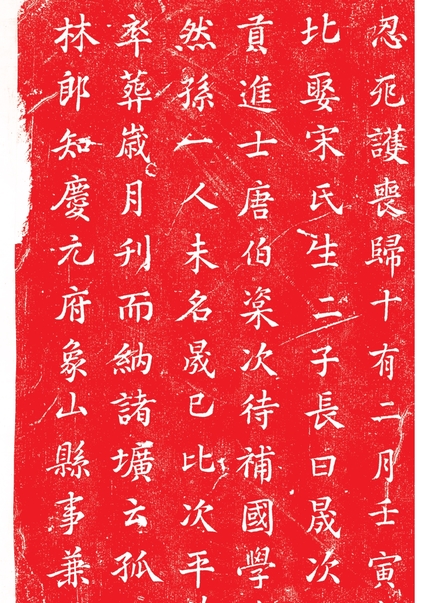 忍死護喪歸十有二月壬寅
北娶宋氏生二子長曰晟次
貢進士唐伯楶次待補國學
然孫一人未名晟已比次平
率葬歲月刊而納諸壙云孤
林郎知慶元府象山縣事兼